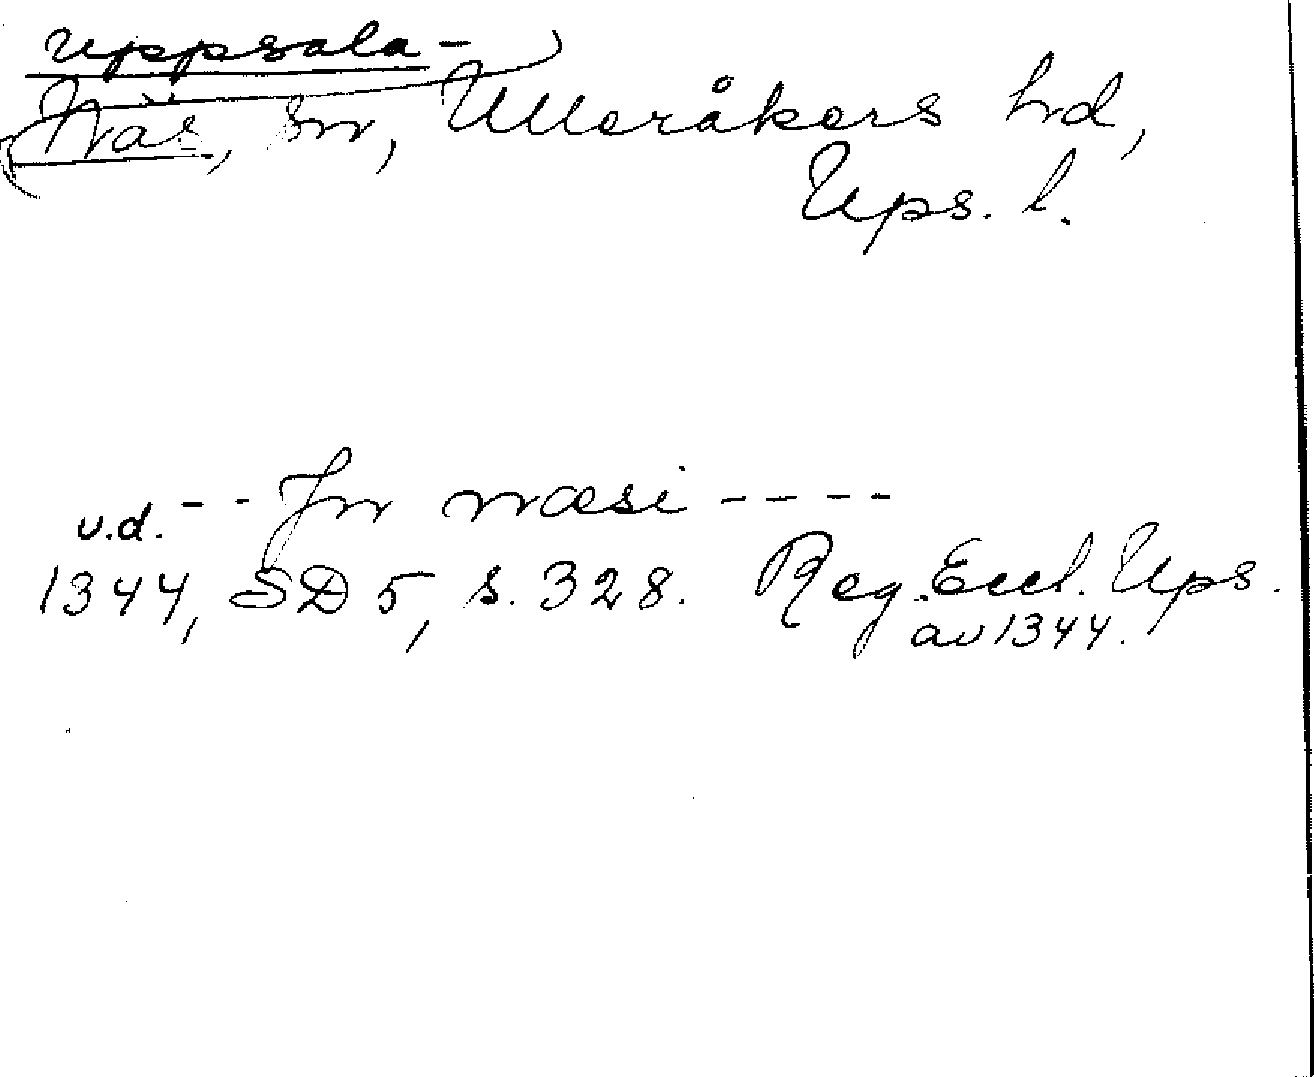 Uppsala-
Näs, sn, Ulleråkers hd,
Ups. l.
u.d. - - Jn næsi - - - -
1344, SD 5, s. 328. Reg. Eccl. Ups.
av 1344.